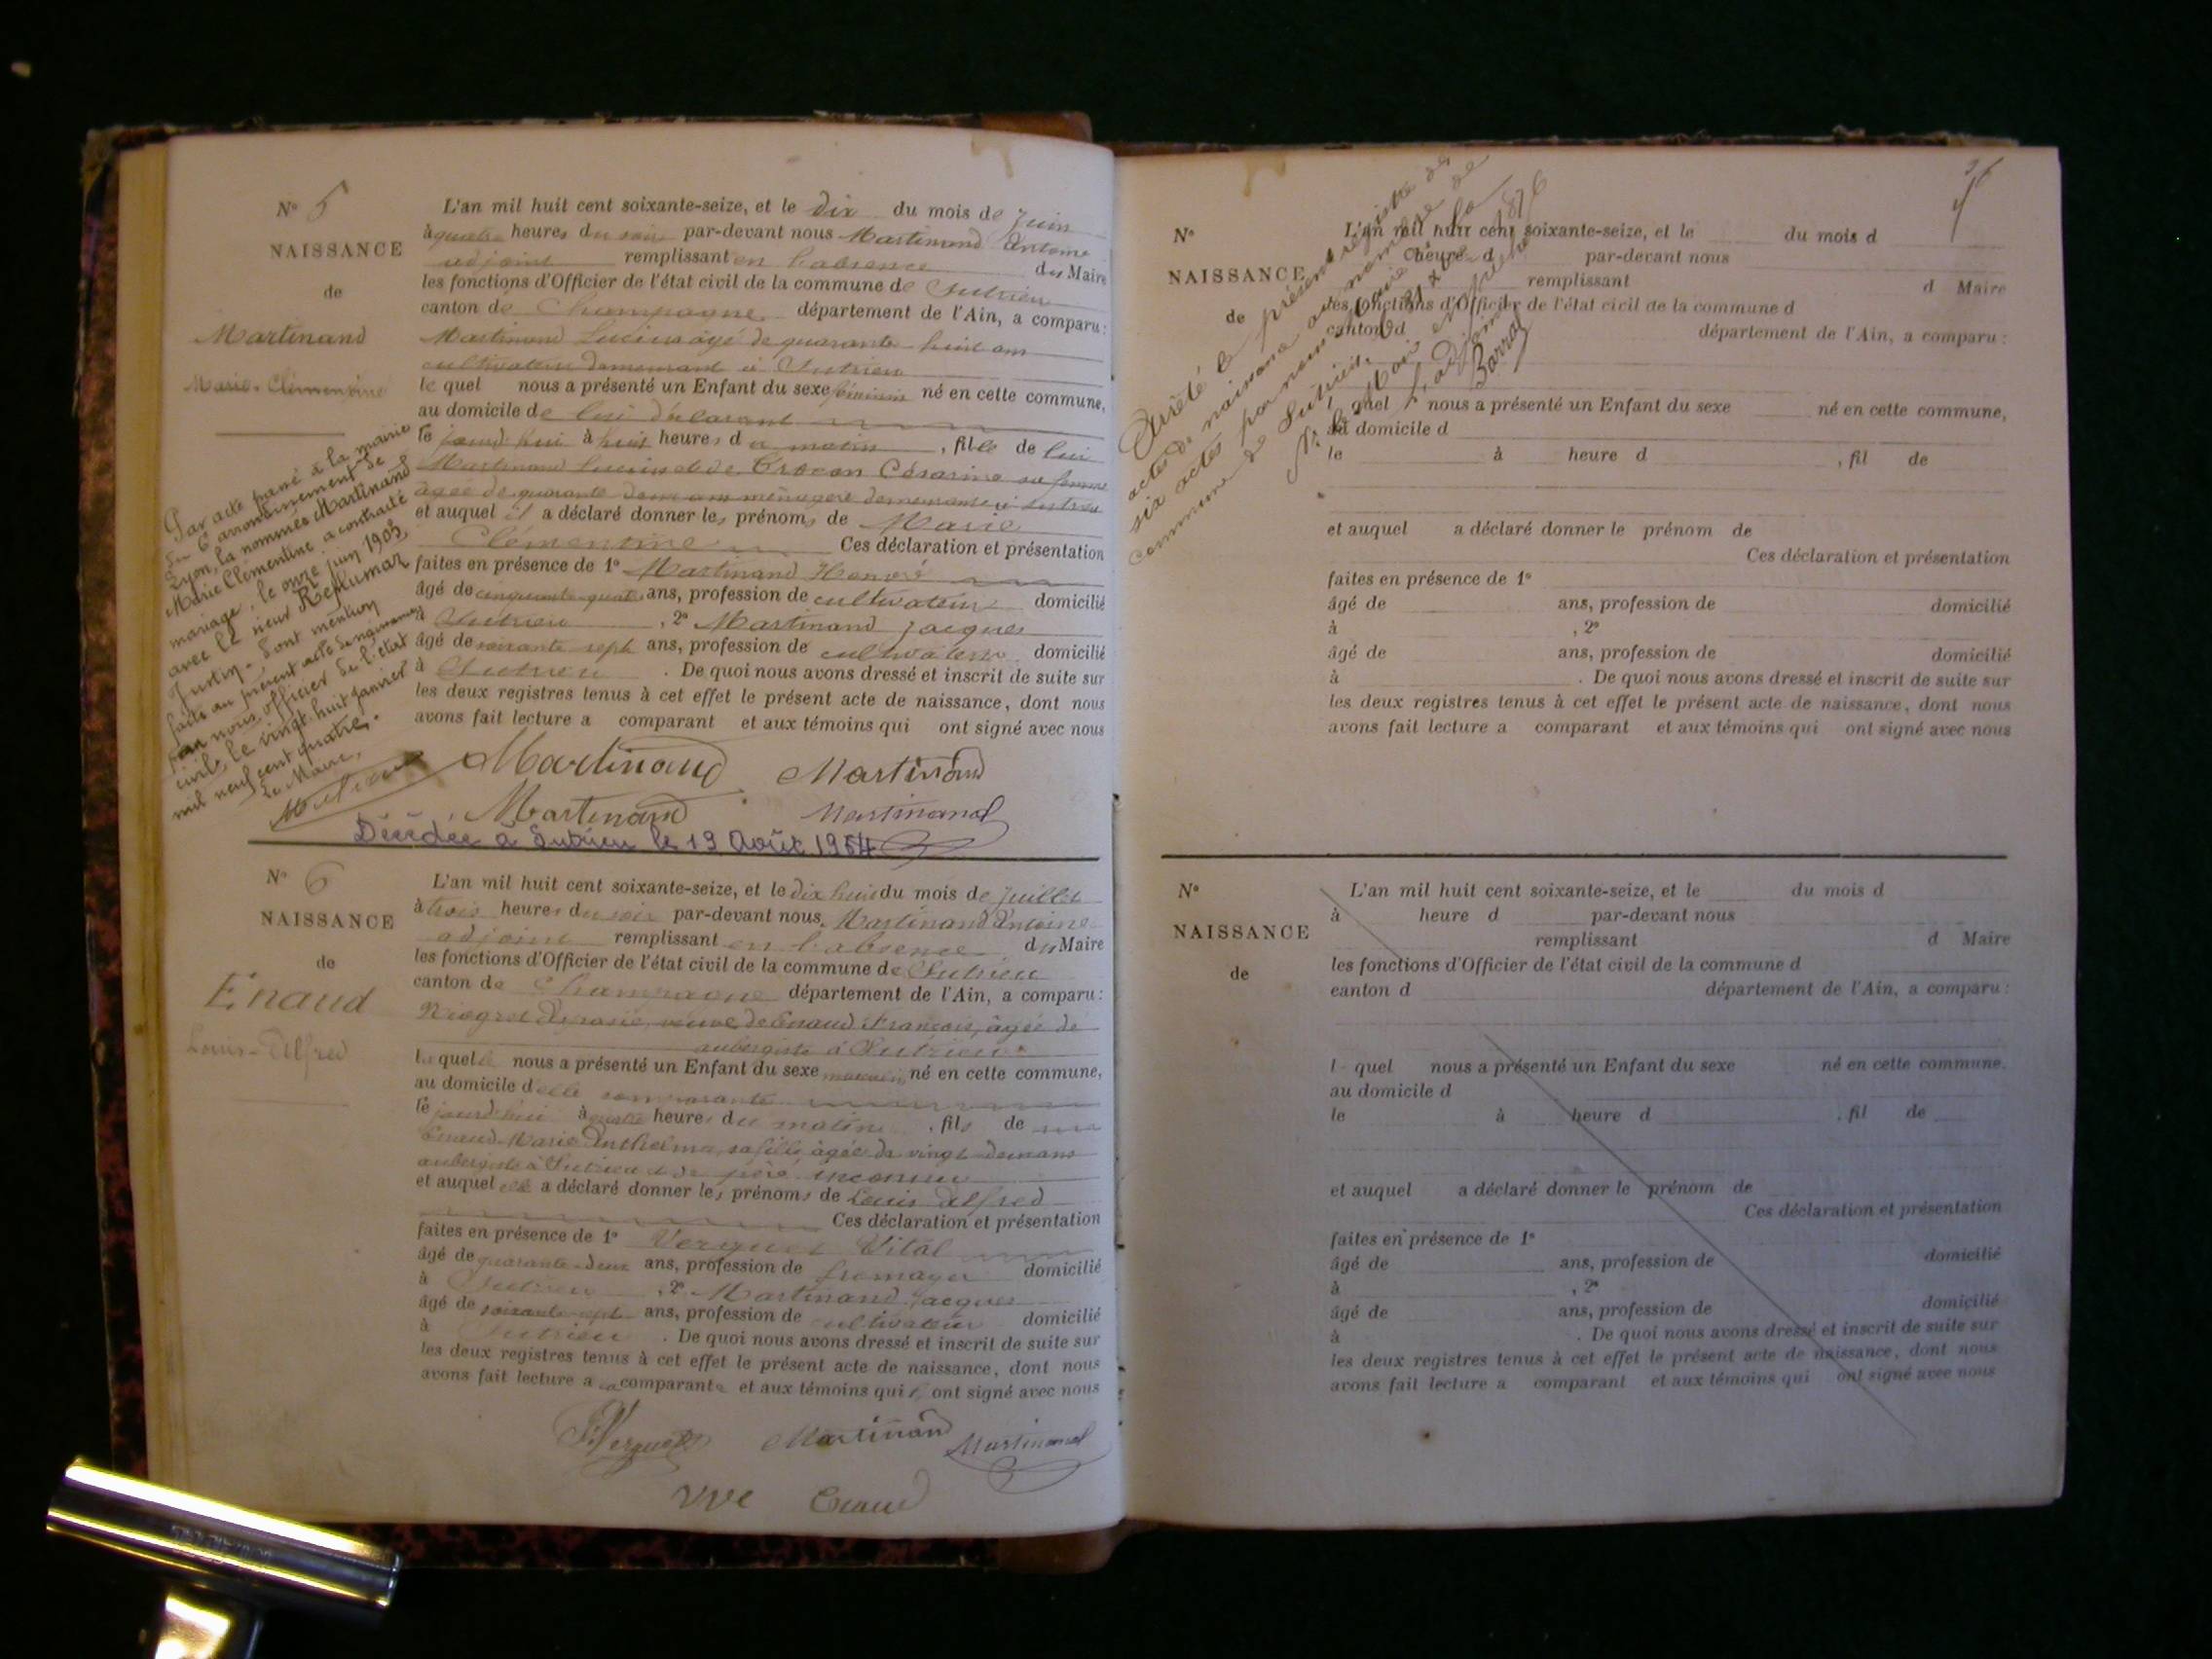 N° 5
NAISSANCE
de
Martinand
Marie-Clémentine
L'an mil huit cent soixante-seize, et le dix du mois de Juin
à quatre heures du soir par-devant nous Martinand Antoine
adjoint remplissant en l'absence du Maire
les fonctions d'Officier de l'état civil de la commune de Sutrieu
canton de Champagne département de l'Ain, a comparu :
Martinand Lucien âgé de quarante-huit ans
cultivateur demeurant à Sutrieu
le quel nous a présenté un Enfant du sexe féminin né en cette commune,
au domicile de lui déclarant
le jourd'hui à huit heures du matin, fille de lui
Martinand Lucien et de Césarine sa femme
âgée de quarante deux ans ménagère demeurant à Sutrieu
et auquel il a déclaré donner les prénoms de Marie
Clémentine Ces déclaration et présentation
faites en présence de 1° Martinand Honoré
âgé de cinquante-quatre ans, profession de cultivateur domicilié
à Sutrieu, 2° Martinand Jacques
âgé de soixante sept ans, profession de cultivateur domicilié
à Sutrieu. De quoi nous avons dressé et inscrit de suite sur
les deux registres tenus à cet effet le présent acte de naissance, dont nous
avons fait lecture a comparant et aux témoins qui ont signé avec nous
Martinand Martinand
Martinand Martinand
Décédée à Sutrieu le 19 Août 1964
Par acte passé à la mairie
du 6e arrondissement de
Lyon, la nommée Martinand
Marie Clémentine a contracté
mariage, le onze juin 1903
avec le sieur
Justin. Dont mention
faite au présent acte de naissance
par nous, officier de l'état
civil, le vingt-huit janvier
mil neuf cent quatre.
Le Maire,
N° 6
NAISSANCE
de
Enaud
Louis-Alfred
L'an mil huit cent soixante-seize, et le dix huit du mois de Juillet
à trois heures du soir par-devant nous, Martinand Antoine
adjoint remplissant en l'absence du Maire
les fonctions d'Officier de l'état civil de la commune de Sutrieu
canton de Champagne département de l'Ain, a comparu :
veuve de Enaud François, âgée de
aubergiste à Sutrieu
laquelle nous a présenté un Enfant du sexe masculin né en cette commune,
au domicile d'elle comparante
le jourd'hui à quatre heures du matin, fils de
Enaud Marie Anthelmine, sa fille, âgée de vingt-deux ans
aubergiste à Sutrieu et de père inconnu
et auquel elle a déclaré donner les prénoms de Louis Alfred
Ces déclaration et présentation
faites en présence de 1° Verguet Vital
âgé de quarante-deux ans, profession de fromager domicilié
à Sutrieu, 2° Martinand Jacques
âgé de soixante-sept ans, profession de cultivateur domicilié
à Sutrieu. De quoi nous avons dressé et inscrit de suite sur
les deux registres tenus à cet effet le présent acte de naissance, dont nous
avons fait lecture a la comparante et aux témoins qui ont signé avec nous
Verguet Martinand Martinand
vve Enaud
Arrêté le présent registre des
actes de naissance au nombre de
six actes par nous Maire de la
commune de Sutrieu, le 31 Xbre 1876
Pr le Maire empêché
L'adjoint
N°
NAISSANCE
de
L'an mil huit cent soixante-seize, et le du mois d
heure d par-devant nous
remplissant d Maire
les fonctions d'Officier de l'état civil de la commune d
canton d département de l'Ain, a comparu :
l quel nous a présenté un Enfant du sexe né en cette commune,
au domicile d
le à heure d , fil de
et auquel a déclaré donner le prénom de
Ces déclaration et présentation
faites en présence de 1°
âgé de ans, profession de domicilié
à , 2°
âgé de ans, profession de domicilié
à . De quoi nous avons dressé et inscrit de suite sur
les deux registres tenus à cet effet le présent acte de naissance, dont nous
avons fait lecture a comparant et aux témoins qui ont signé avec nous
N°
NAISSANCE
de
L'an mil huit cent soixante-seize, et le du mois d
à heure d par-devant nous
remplissant d Maire
les fonctions d'Officier de l'état civil de la commune d
canton d département de l'Ain, a comparu :
l quel nous a présenté un Enfant du sexe né en cette commune.
au domicile d
le à heure d , fil de
et auquel a déclaré donner le prénom de
Ces déclaration et présentation
faites en présence de 1°
âgé de ans, profession de domicilié
à , 2°
âgé de ans, profession de domicilié
à . De quoi nous avons dressé et inscrit de suite sur
les deux registres tenus à cet effet le présent acte de naissance, dont nous
avons fait lecture a comparant et aux témoins qui ont signé avec nous